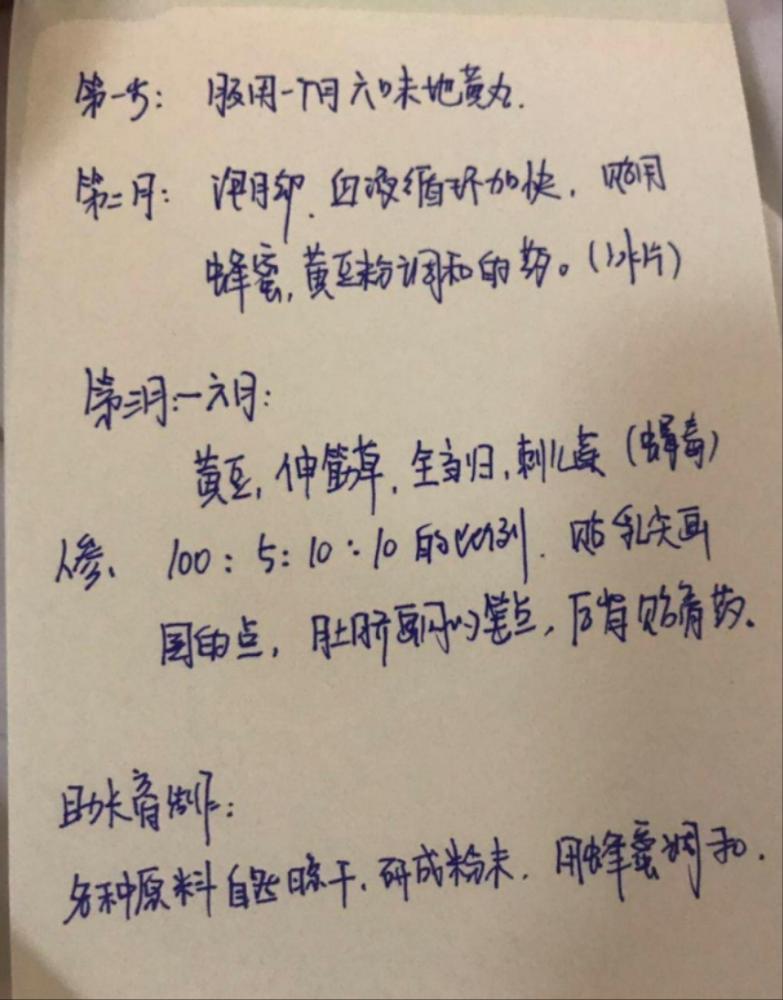 第一步: 服用一个月六味地黄丸.
第二月: 泡脚、血液循环加快, 贴用
蜂蜜,黄豆粉调和的药。(冰片)
第三月:一六月:
黄豆, 伸筋草, 全当归,刺儿菜 (蜂毒)
人参、 100 : 5 : 10 : 10 的比例. 贴乳尖画
圆的点, 肚脐画的笔点, 后背贴膏药.
助长膏制作:
各种原料自然晾干, 研成粉末, 用蜂蜜调和.